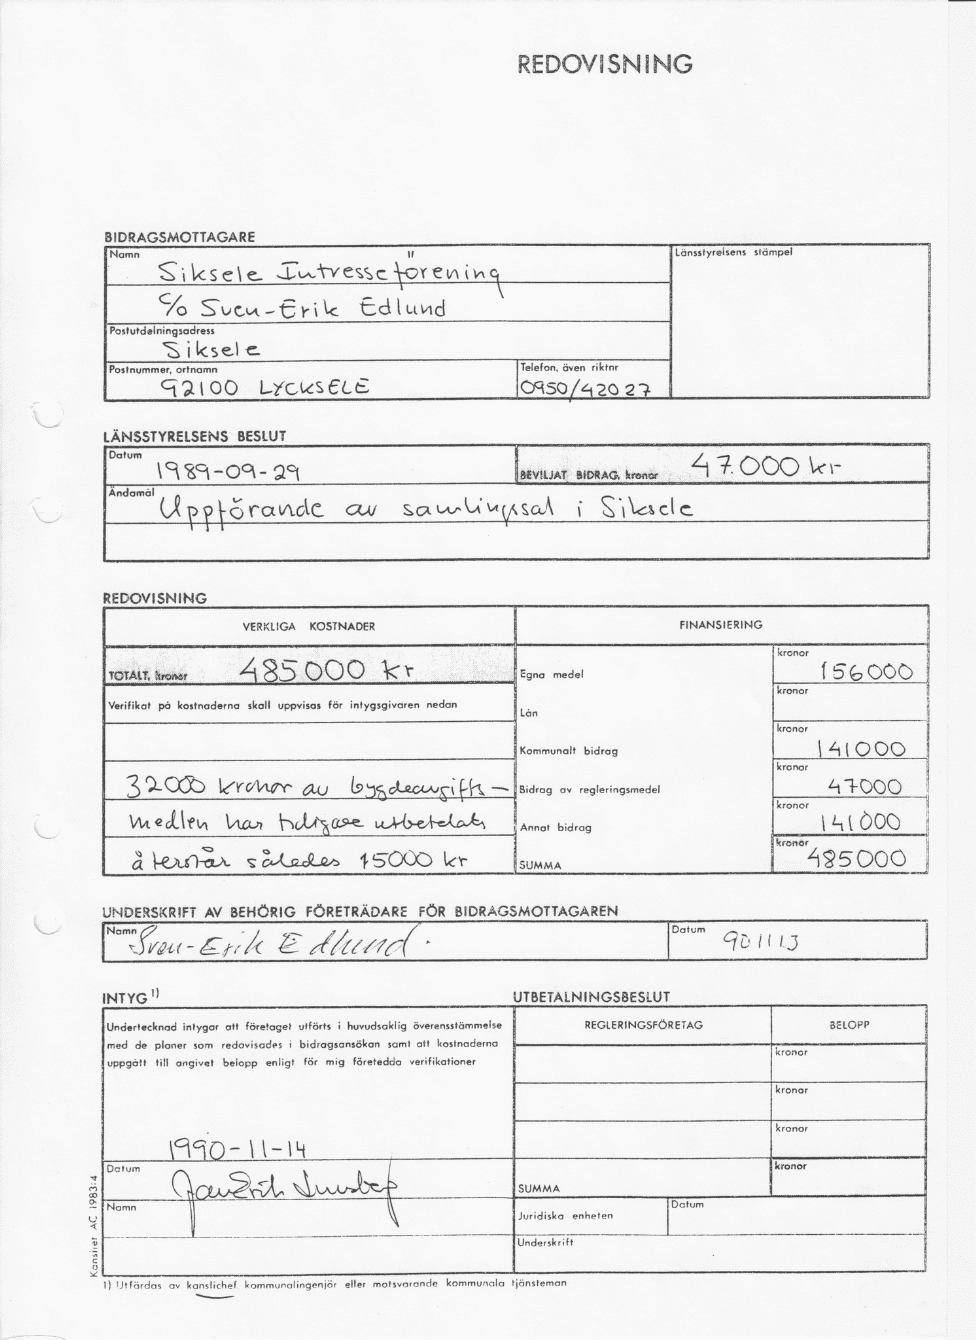 REDOVISNING
BIDRAGSMOTTAGARE
Namn
Siksele Intresseförening
Länsstyrelsens stämpel
c/o Sven-Erik Edlund
Postutdelningsadress
Siksele
Postnummer, ortnamn
92100 LYCKSELE
Telefon, även riktnr
0950/42027
LÄNSSTYRELSENS BESLUT
Datum
1989-09-29
BEVILJAT BIDRAG, kronor
47.000 kr
Ändamål
Uppförande av samlingssal i Siksele
REDOVISNING
VERKLIGA KOSTNADER
FINANSIERING
TOTALT, kronor
485000 kr
Egna medel
kronor
156000
Verifikat på kostnaderna skall uppvisas för intygsgivaren nedan
Lån
kronor
Kommunalt bidrag
kronor
141000
32000 kronor av bygdeavgifts-
Bidrag av regleringsmedel
kronor
47000
medlen har tidigare utbetalats
Annat bidrag
kronor
141000
återstår således 15000 kr
SUMMA
kronor
485000
UNDERSKRIFT AV BEHÖRIG FÖRETRÄDARE FÖR BIDRAGSMOTTAGAREN
Namn
Sven-Erik Edlund.
Datum
901113
INTYG 1)
UTBETALNINGSBESLUT
Undertecknad intygar att företaget utförts i huvudsaklig överensstämmelse
med de planer som redovisades i bidragsansökan samt att kostnaderna
uppgått till angivet belopp enligt för mig företedda verifikationer
REGLERINGSFÖRETAG
BELOPP
kronor
kronor
kronor
1990-11-14
Datum
Jan-Erik
Namn
SUMMA
kronor
Juridiska enheten
Datum
Underskrift
Kansliet AC 1983:4
1) Utfärdas av kanslichef kommunalingenjör eller motsvarande kommunala tjänsteman